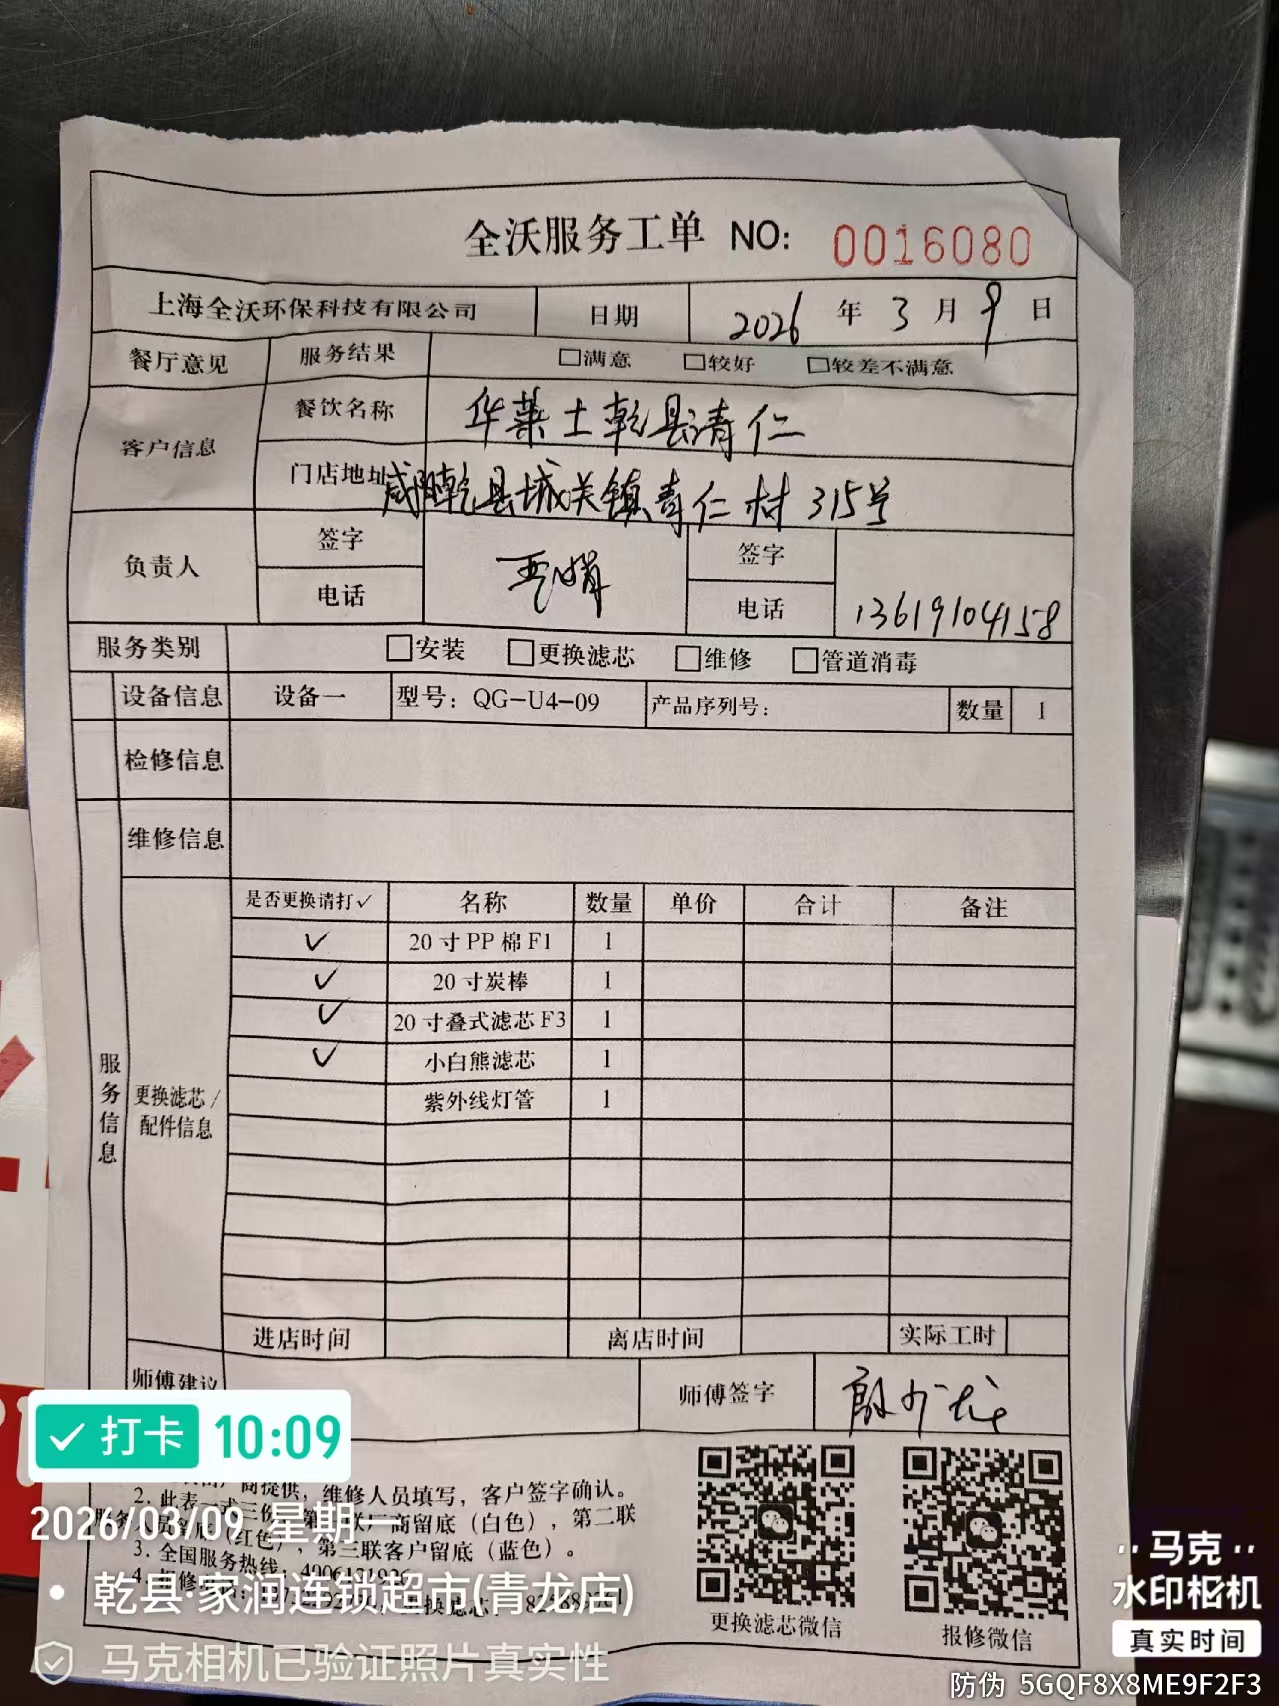 全沃服务工单 NO: 0016080
上海全沃环保科技有限公司 日期 2026 年 3 月 9 日
餐厅意见 服务结果 □满意 □较好 □较差不满意
客户信息 餐饮名称 华莱士乾县请仁
门店地址 咸阳乾县城关镇青仁村 315号
负责人 签字 签字
电话 电话 13619104158
服务类别 □安装 □更换滤芯 □维修 □管道消毒
设备信息 设备一 型号：QG-U4-09 产品序列号： 数量 1
检修信息
维修信息
服务信息
更换滤芯/
配件信息
是否更换请打✓ 名称 数量 单价 合计 备注
✓ 20寸PP棉F1 1
✓ 20寸炭棒 1
✓ 20寸叠式滤芯F3 1
✓ 小白熊滤芯 1
紫外线灯管 1
进店时间 离店时间 实际工时
师傅建议 师傅签字
商提供，维修人员填写，客户签字确认。
2. 此表一式三份 商留底（白色），第二联
（红色），第三联客户留底（蓝色）。
3. 全国服务热线：
更换滤芯微信 报修微信
✓ 打卡 10:09
2026/03/09 星期一
• 乾县·家润连锁超市(青龙店)
马克相机已验证照片真实性
马克
水印相机
真实时间
防伪 5GQF8X8ME9F2F3